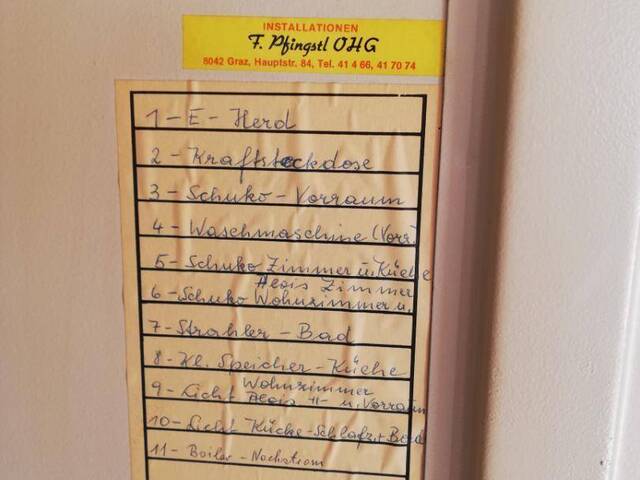 INSTALLATIONEN
F. Pfingstl OHG
8042 Graz, Hauptstr. 84, Tel. 41 4 66, 41 70 74
1 - E - Herd
2 - Kraftsteckdose
3 - Schuko - Vorraum
4 - Waschmaschine (Vorr.)
5 - Schuko Zimmer u. Küche
Alois Zimmer
6 - Schuko Wohnzimmer u.
7 - Strahler - Bad
8 - Kl. Speicher - Küche
Wohnzimmer
9 - Licht Alois -11- u. Vorraum
10 - Licht Küche - Schlafz. + Bad
11 - Boiler - Nachstrom